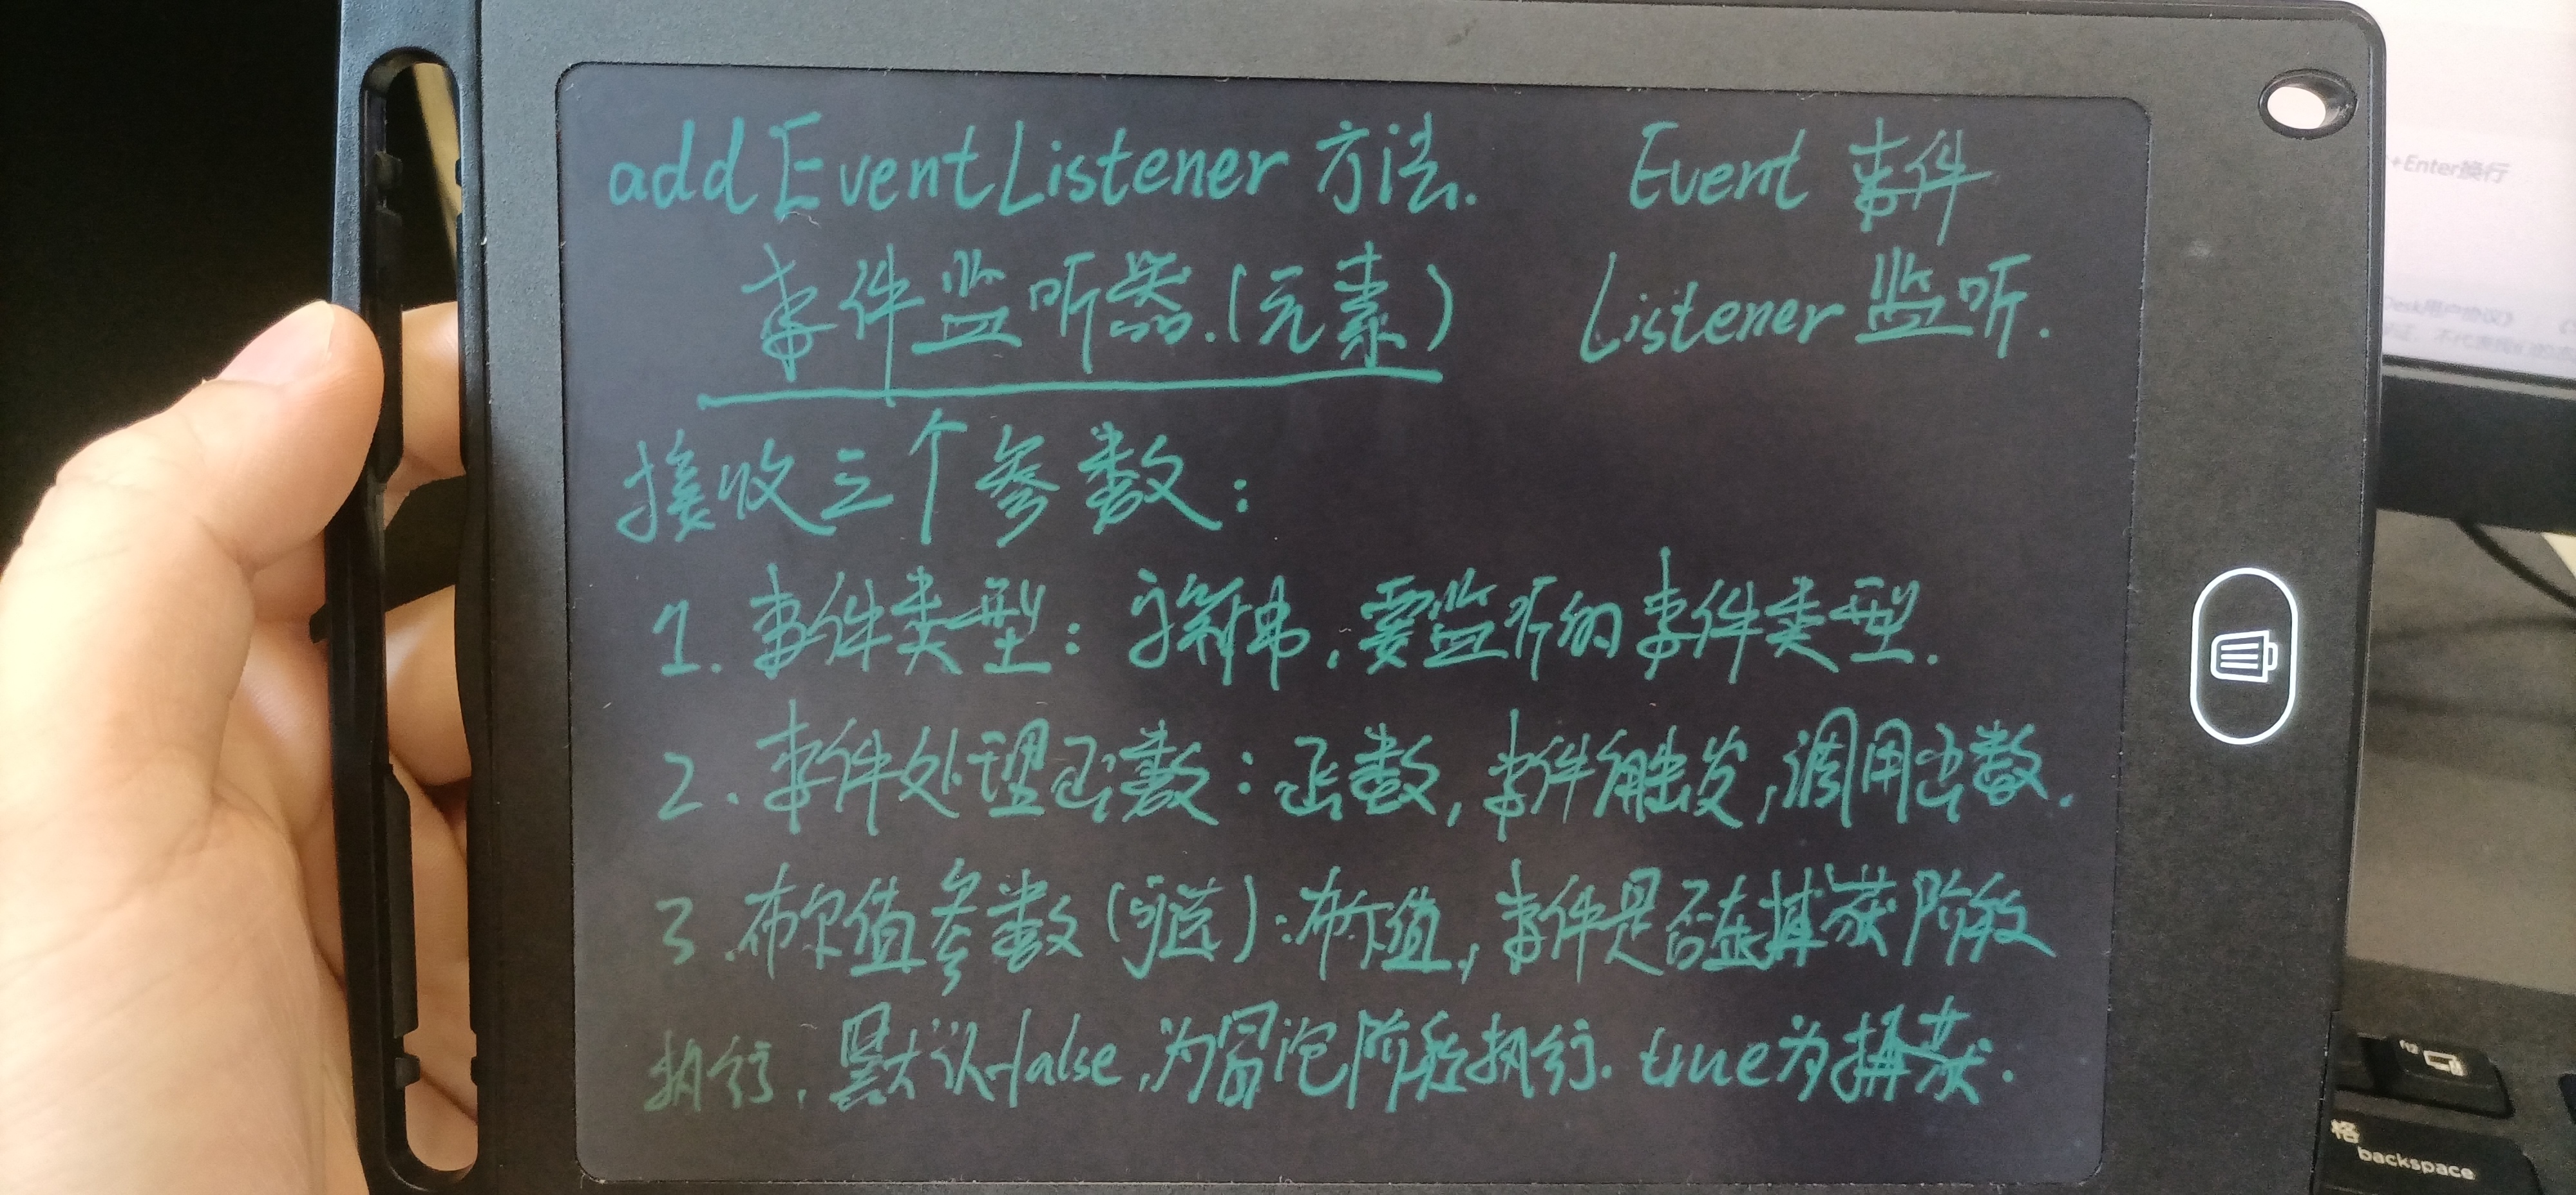 addEventListener 方法. Event 事件
事件监听器.(元素) Listener 监听.
接收三个参数:
1. 事件类型: 字符串,要监听的事件类型.
2. 事件处理函数: 函数,事件触发,调用函数.
3. 布尔值参数(可选):布尔值,事件是否在捕获阶段
执行, 默认false,为冒泡阶段执行. true为捕获.
+Enter换行
Desk用户协议》
f12
格
backspace